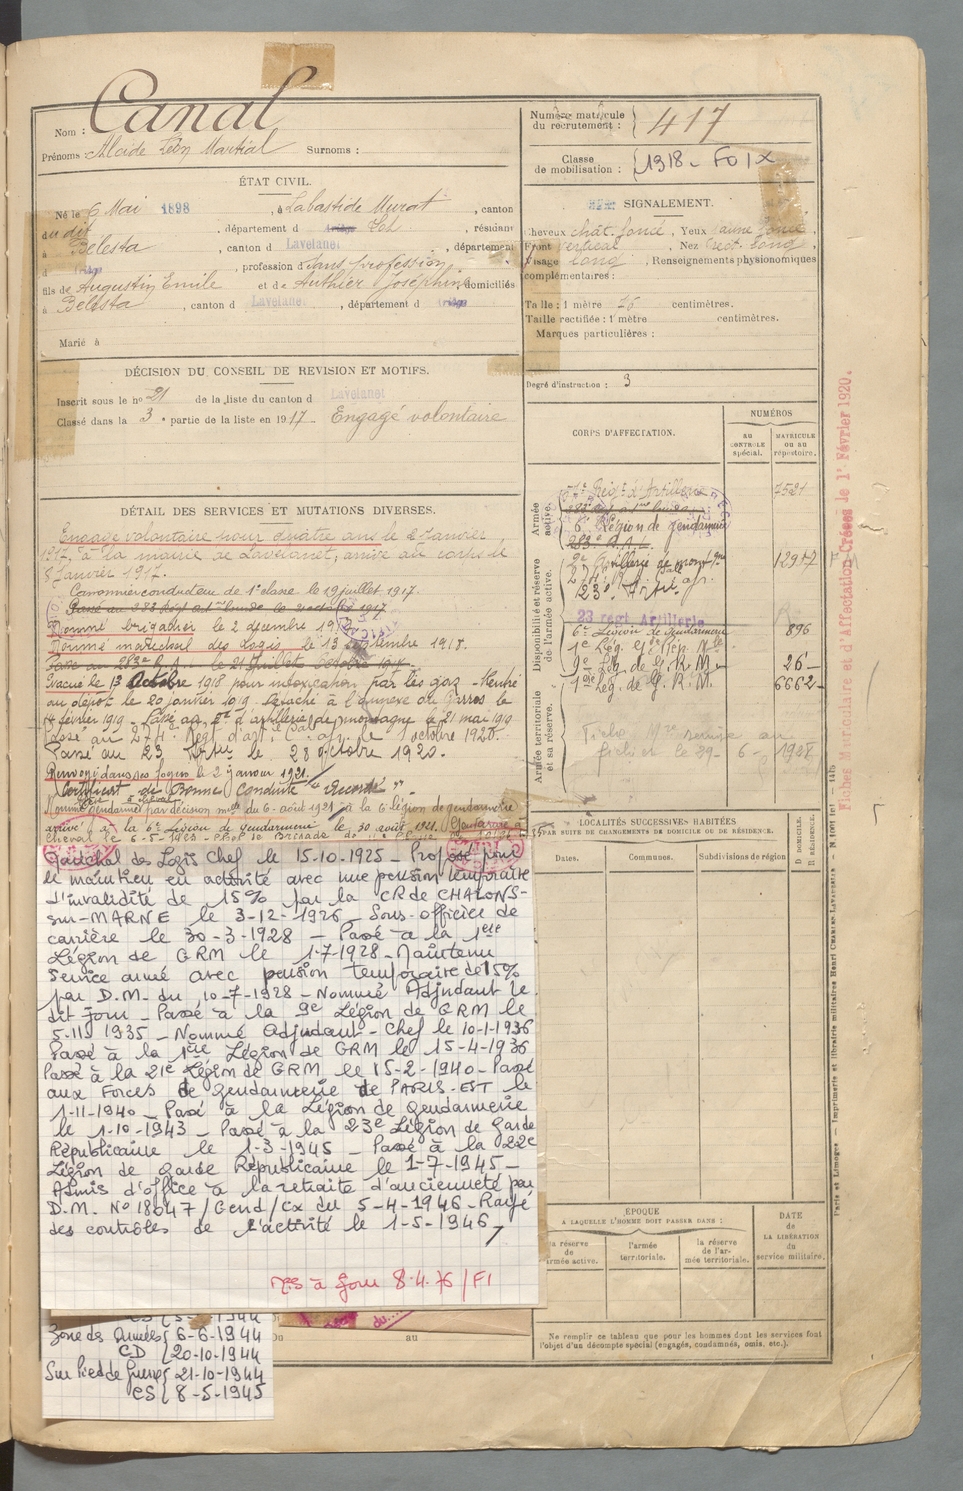 Nom : Canal
Prénoms : Alcide Léon Martial Surnoms :
ÉTAT CIVIL.
Né le 6 Mai 1898, à Labastide Murat, canton
du dit, département d Lot, résidant
à Bélesta, canton d Lavelanet, département
d Ariège, profession d sans profession
fils de Augustin Emile et de Authier Joséphine domiciliés
à Bélesta, canton d Lavelanet, département d Ariège
Marié à
DÉCISION DU CONSEIL DE REVISION ET MOTIFS.
Inscrit sous le nº 21 de la liste du canton d Lavelanet
Classé dans la 3e partie de la liste en 1917 Engagé volontaire
DÉTAIL DES SERVICES ET MUTATIONS DIVERSES.
Engagé volontaire pour quatre ans le 2 Janvier
1917, à la mairie de Lavelanet, arrivé au corps le
8 Janvier 1917.
Canonnier conducteur de 1e classe le 19 juillet 1917.
Nommé brigadier le 2 décembre
Nommé maréchal des logis le 13 septembre 1918.
Evacué le 13 Octobre 1918 pour intoxication par les gaz - Rentré
au dépôt le 20 janvier 1919 - Détaché à l'annexe du
février 1919 - Passé au 2e d'artillerie de montagne le 21 mai 1919
Passé au 274e Régt d'art. le 1 octobre 1920.
Passé au 23 Artie le 28 octobre 1920.
Renvoyé dans ses foyers le 2 janvier 1921.
Certificat de Bonne Conduite "Accordé".
Nommé gendarme par décision mlle du 6 août 1921 à la 6 légion de gendarmerie
arrivé à la 6e Légion de gendarmerie le 30 août 1921.
Maréchal des Logis Chef le 15-10-1925 - Proposé pour
le maintien en activité avec une pension temporaire
d'invalidité de 15% par la CR de CHALONS-
sur-MARNE le 3-12-1926 - Sous-officier de
carrière le 30-3-1928 - Passé à la 1ere
Légion de GRM le 1-7-1928 - Maintenu
service armé avec pension temporaire de 15%
par D.M. du 10-7-1928 - Nommé Adjudant le
dit jour - Passé à la 9e Légion de GRM le
5-11-1935 - Nommé Adjudant-Chef le 10-1-1936
Passé à la 1ere Légion de GRM le 15-4-1936
Passé à la 21e Légion de GRM le 15-2-1940 - Passé
aux Forces de gendarmerie de PARIS-EST le
1-11-1940 - Passé à la Légion de Gendarmerie
le 1-10-1943 - Passé à la 23e Légion de Garde
Républicaine le 1-3-1945 - Passé à la 22e
Légion de Garde Républicaine le 1-7-1945 -
Admis d'office à la retraite d'ancienneté par
D.M. Nº 18647/Gend/Cx du 5-4-1946 - Rayé
des contrôles de l'activité le 1-5-1946
Mis à jour 8.4.76/FI
au
Zone des Armées { 6-6-1944
CD { 20-10-1944
Sur Pied de guerre { 21-10-1944
CS { 8-5-1945
Numéro matricule
du recrutement : 417
Classe
de mobilisation : 1918 - FOIX
SIGNALEMENT.
Cheveux chât. foncé, Yeux jaune foncé,
Front vertical, Nez rect. long,
Visage long, Renseignements physionomiques
complémentaires :
Taille : 1 mètre 76 centimètres.
Taille rectifiée : 1 mètre centimètres.
Marques particulières :
Degré d'instruction : 3
CORPS D'AFFECTATION.
NUMÉROS
AU
CONTRÔLE
spécial.
MATRICULE
ou au
répertoire.
Armée
active.
Régt d'Artillerie 7521
6e Légion de gendarmie
Disponibilité et réserve
de l'armée active.
2e Artillerie de montgne 12917
23e Artie
23 regt Artillerie
6e Légion de Gendarmerie 896
9e Lég. de G. R. M. 26
1ere Lég. de G. R. M. 6662
Armée territoriale
et sa réserve.
LOCALITÉS SUCCESSIVES HABITÉES
PAR SUITE DE CHANGEMENTS DE DOMICILE OU DE RÉSIDENCE.
Dates.
Communes.
Subdivisions de région
D DOMICILE.
R RÉSIDENCE.
ÉPOQUE
A LAQUELLE L'HOMME DOIT PASSER DANS :
la réserve
de
l'armée active.
l'armée
territoriale.
la réserve
de l'ar-
mée territoriale.
DATE
de
LA LIBÉRATION
du
service militaire.
Ne remplir ce tableau que pour les hommes dont les services font
l'objet d'un décompte spécial (engagés, condamnés, omis, etc.).
Fiches Matriculaire et d'Affectation Créées le 1er Février 1920.
Paris et Limoges. — Imprimerie et librairie militaires Henri CHARLES-LAVAUZELLE